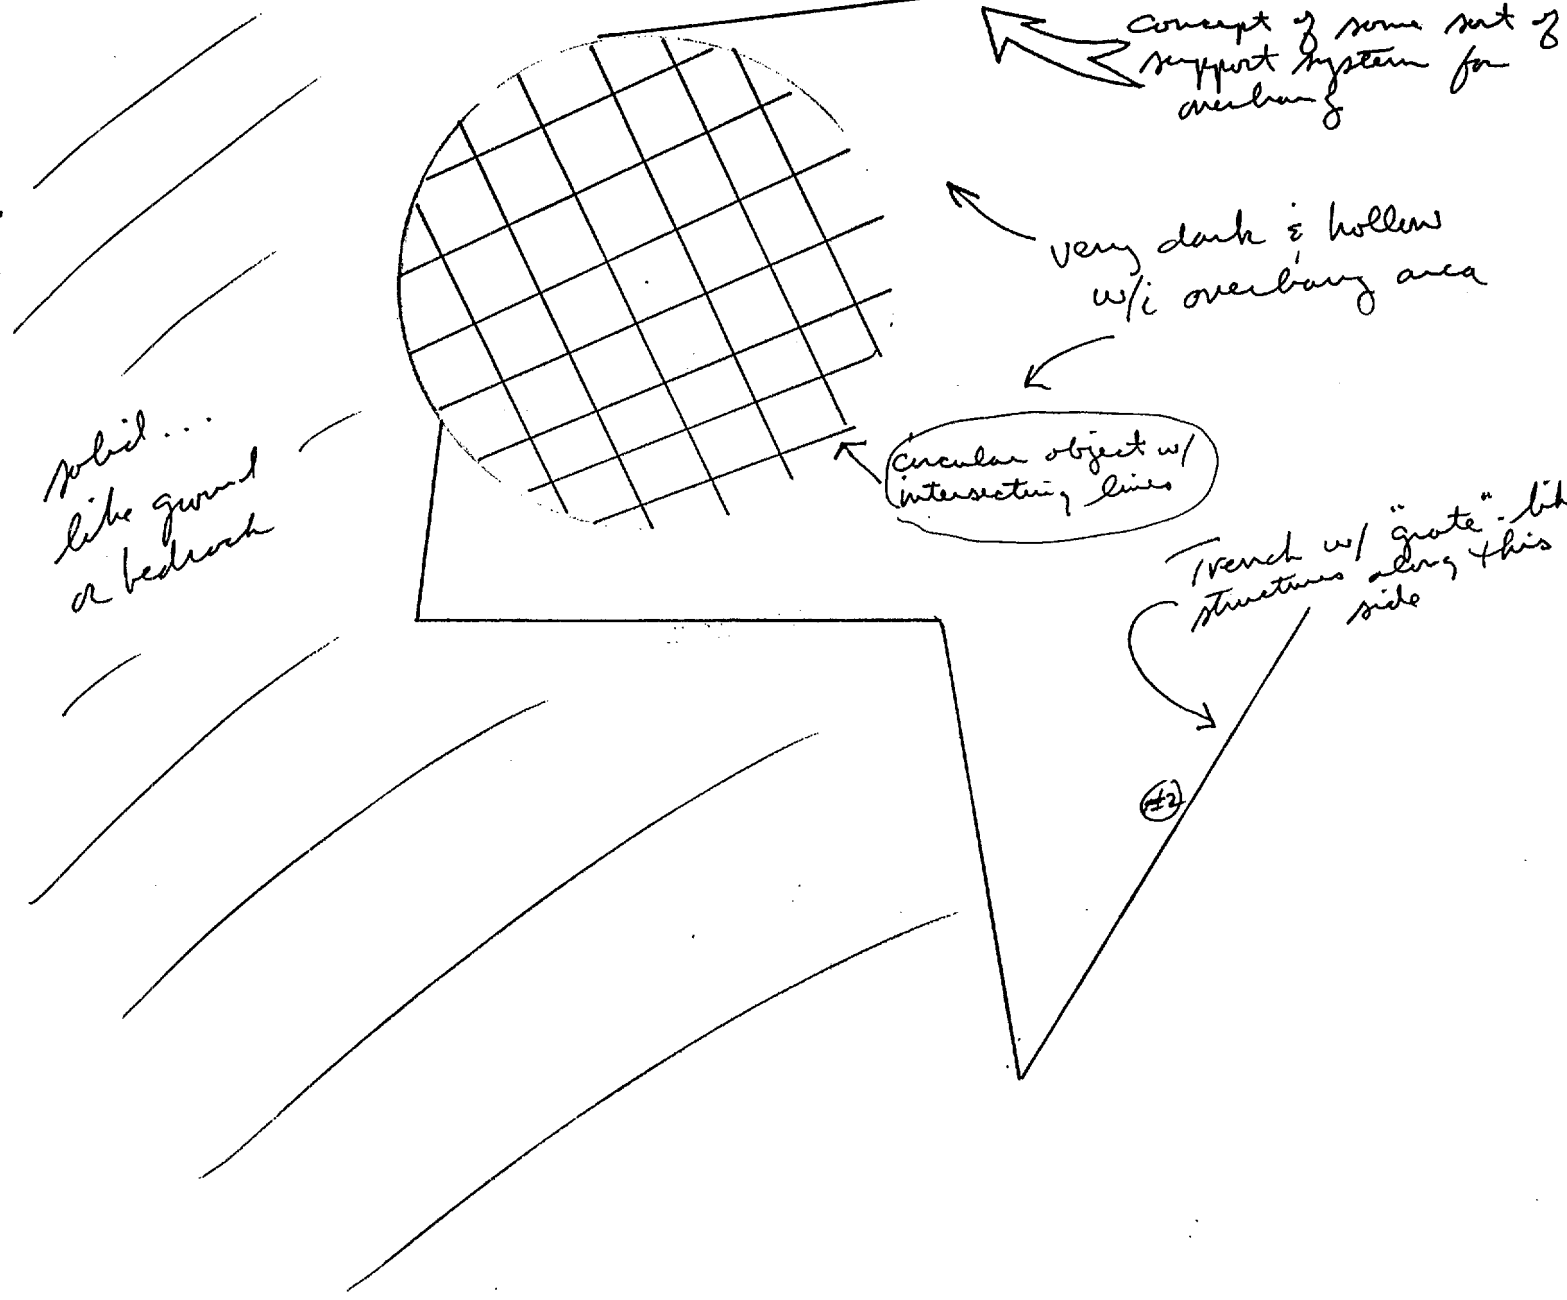 concept of some sort of
support system for
overhang
very dark & hollow
w/i overhang area
solid...
like ground
or bedrock
circular object w/
intersecting lines
Trench w/ "grate"-lik
structures along this
side
#2